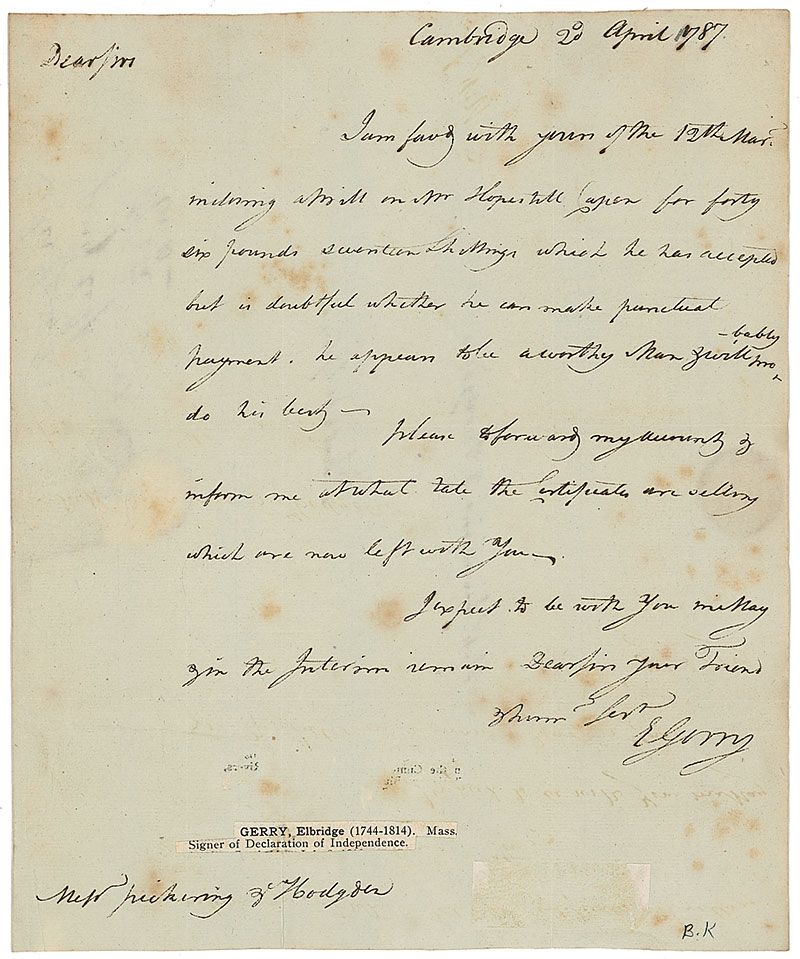 Cambridge 2d April 1787.
Dear sirs
I am favd with yours of the 12th Mar.
inclosing a Bill on Mr Hopestill Capen for forty
six pounds seventeen Shillings which he has accepted
but is doubtful whether he can make punctual
payment. he appears to be a worthy Man & will pro-
-bably
do his best —
please to forward my account &
inform me at what rate the Certificates are selling
which are now left with You —.
I expect to be with You in May
& in the Interim remain Dear sirs your Friend
& hume Servt
E Gerry
GERRY, Elbridge (1744-1814). Mass.
Signer of Declaration of Independence.
Messrs pickering & Hodgdon
B.K